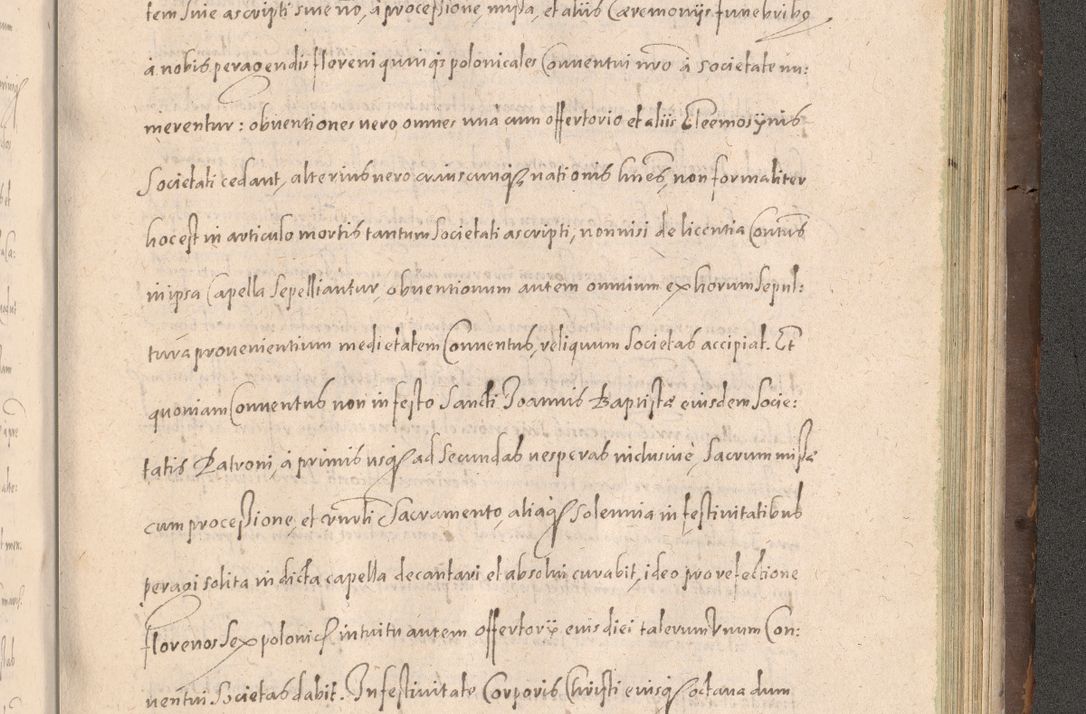 tem siue ascripti siue nō, à processione, missa, et aliis Cæremonijs funebribꝯ
à nobis peragendis floreni quinqꝫ polonicales Conuentui nrō à societate nu:
merentur: obuentiones uero omnes una cum offertorio et aliis Eleemosÿnis
Societati cedant, alterius uero cuiuscunqꝫ nationis hoīes, non formaliter
hoc est in articulo mortis tantum Societati ascripti, non nisi de licentia Conūts
in ipsa Capella Sepelliantur, obuentionum autem omnium ex horum Sepul:
tura prouenientium medietatem Conuentus, reliquum Societas accipiat. Et
quoniam Conuentus non in festo Sancti Joannis Baptistæ eiusdem Socie:
tatis Patroni, à primis usqꝫ ad Secundas uesperas inclusiue, Sacrum missæ
cum processione, et Vnrli Sacramento, aliaqꝫ Solennia in festiuitatibus
peragi solita in dicta capella decantari et absolui curabit, ideo pro refectione
florenos Sex polonicꝭ intuitu autem offertorÿ eius diei talerum Vnum Con:
uentui Societas dabit. In festiuitate Corporis Christi eiusqꝫ octaua dum